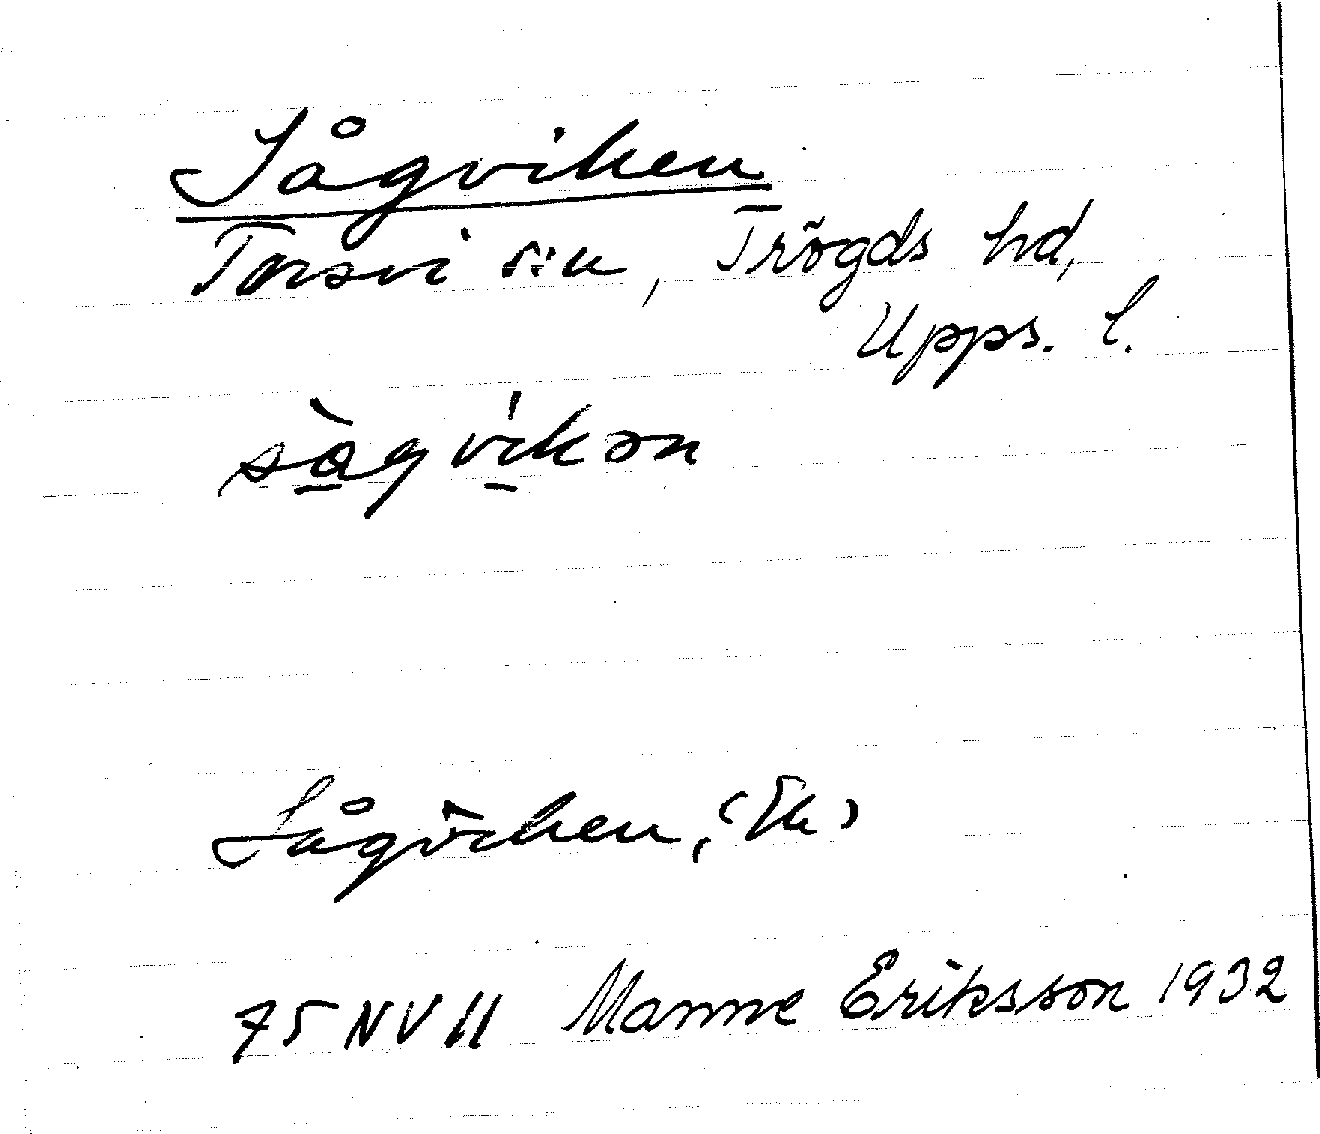 Sågviken
Torsvi s:n, Trögds hd,
Upps. l.
sàgvikən
Sågviken, (Ek)
75 NV 11 Manne Eriksson 1932